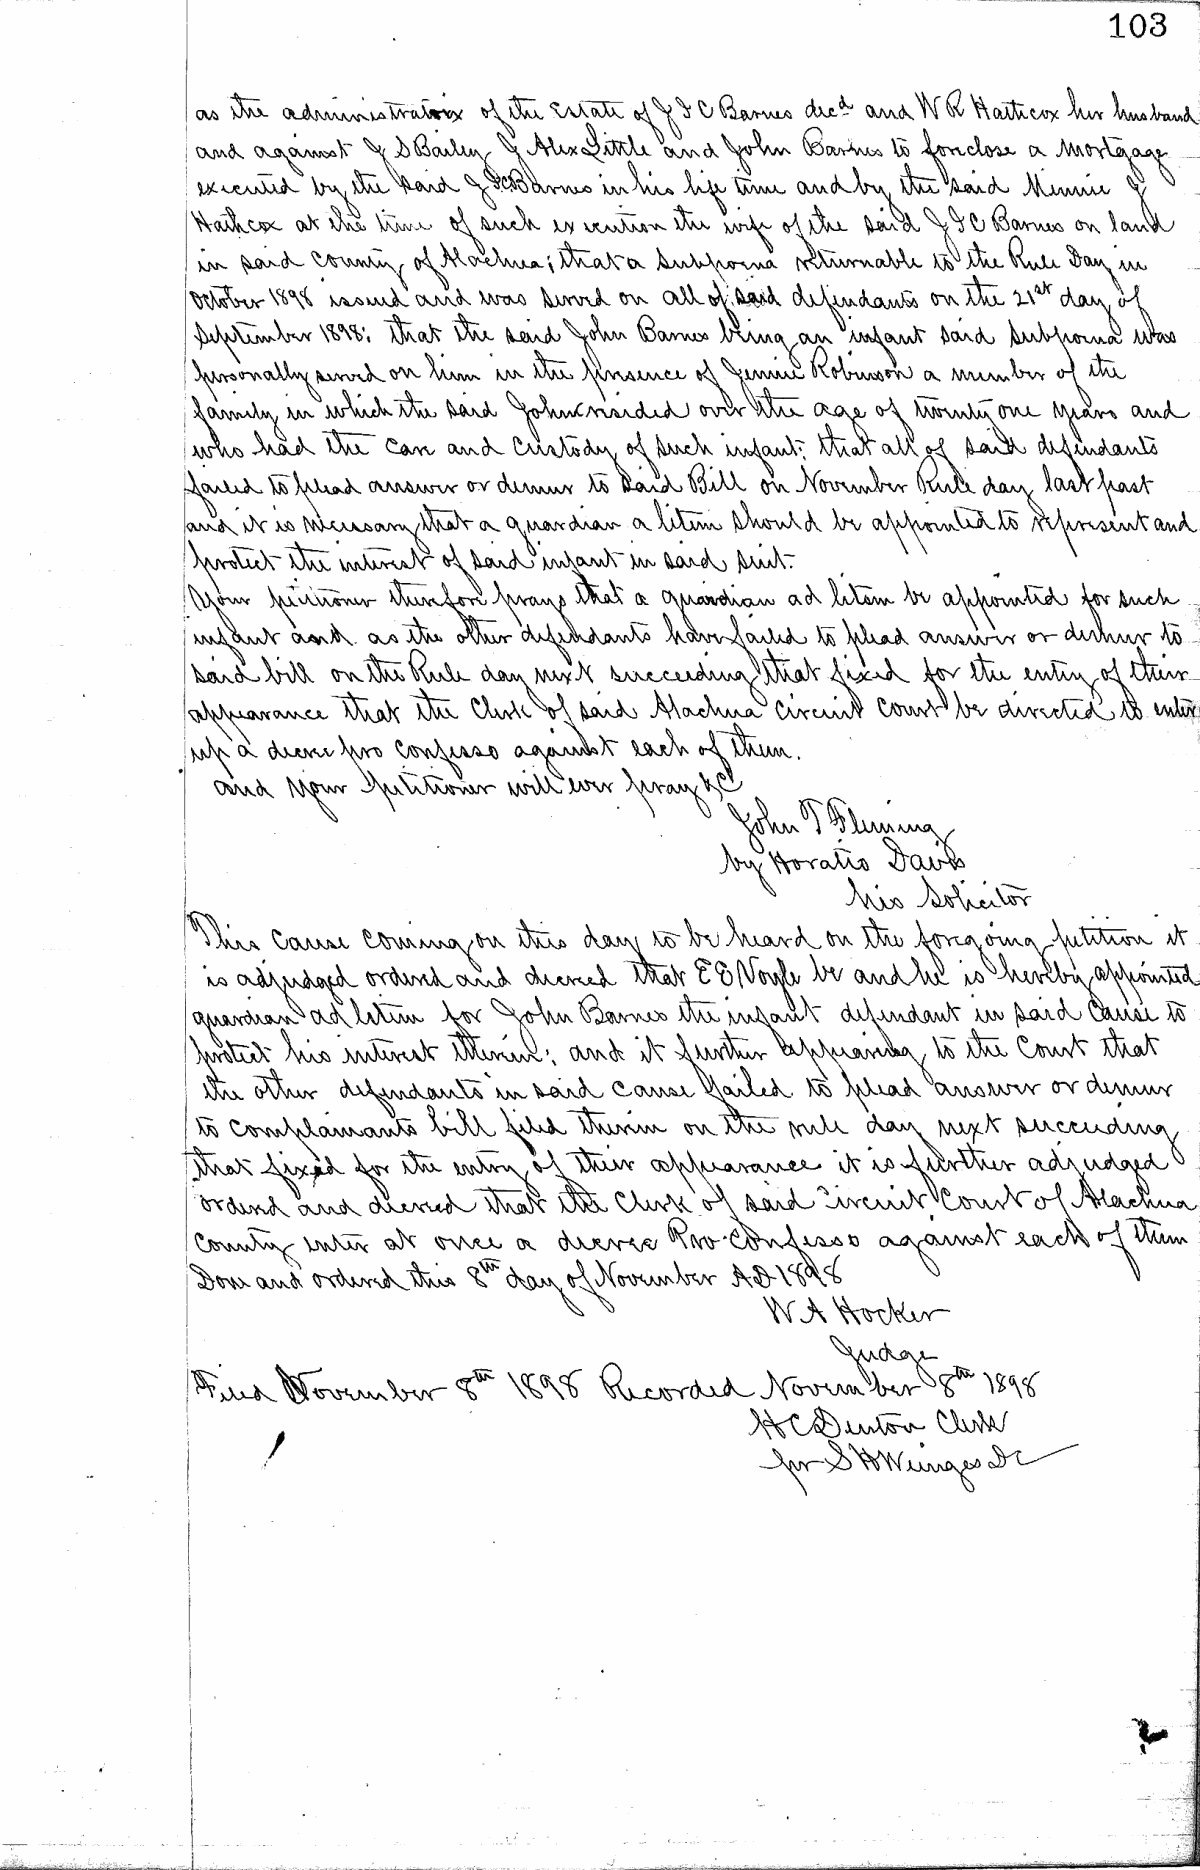 103
as the administratrix of the Estate of J T C Barnes decd and W R Hathcox her husband
and against J S Bailey J Alex Little and John Barnes to foreclose a Mortgage
executed by the said J T C Barnes in his life time and by the said Minnie J
Hathcox at the time of such execution the wife of the said J T C Barnes on land
in said County of Alachua; that a Subpoena returnable to the Rule Day in
October 1898 issued and was served on all of said defendants on the 21st day of
September 1898; that the said John Barnes being an infant said Subpoena was
personally served on him in the presence of Jennie Robinson a member of the
family in which the said John resided over the age of twenty one years and
who had the care and custody of such infant; that all of said defendants
failed to plead answer or demur to said Bill on November Rule day last past
and it is necessary that a guardian a litem should be appointed to represent and
protect the interest of said infant in said suit.
Your petitioner therefore prays that a guardian ad litem be appointed for such
infant and as the other defendants have failed to plead answer or demur to
said bill on the Rule day next succeeding that fixed for the entry of their
appearance that the Clerk of said Alachua Circuit Court be directed to enter
up a decree pro confesso against each of them.
and your petitioner will ever pray &C
John T Fleming
by Horatio Davis
his Solicitor
This cause coming on this day to be heard on the foregoing petition it
is adjudged ordered and decreed that E E Voyle be and he is hereby appointed
guardian ad litem for John Barnes the infant defendant in said Cause to
protect his interest therein; and it further appearing to the Court that
the other defendants in said cause failed to plead answer or demur
to complainants bill filed therein on the rule day next succeeding
that fixed for the entry of their appearance it is further adjudged
ordered and decreed that the Clerk of said Circuit Court of Alachua
County enter at once a decree Pro Confesso against each of them
Done and ordered this 8th day of November AD 1898
W A Hocker
Judge
Filed November 8th 1898 Recorded November 8th 1898
H C Denton Clerk
pr S H Wienges DC